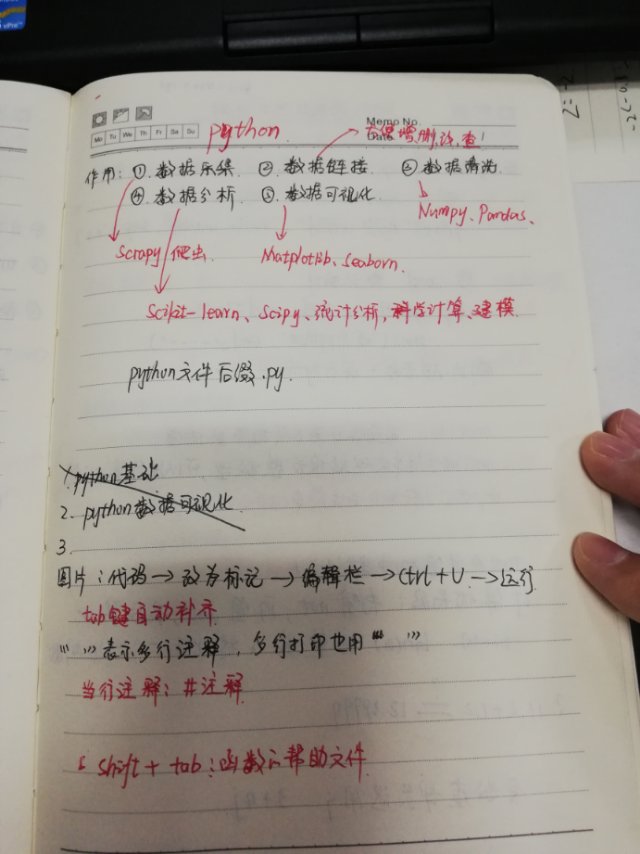 vPro™
Mo Tu We Th Fr Sa Su
Memo No.
Date
python
增、删、改、查!
作用: ①. 数据采集. ②. 数据链接. ③. 数据清洗.
④. 数据分析. ⑤. 数据可视化.
Numpy、Pandas、
Scrapy 爬虫 Matplotlib、Seaborn.
Scikit-learn、Scipy、统计分析, 科学计算、建模.
python文件后缀.py.
1. python基础
2. python数据可视化.
3.
图片:代码→改为标记→编辑栏→Ctrl+V→运行
tab键自动补齐
''' '''表示多行注释, 多行打印也用''' '''
当行注释: #注释
shift + tab:函数的帮助文件
Z=-2